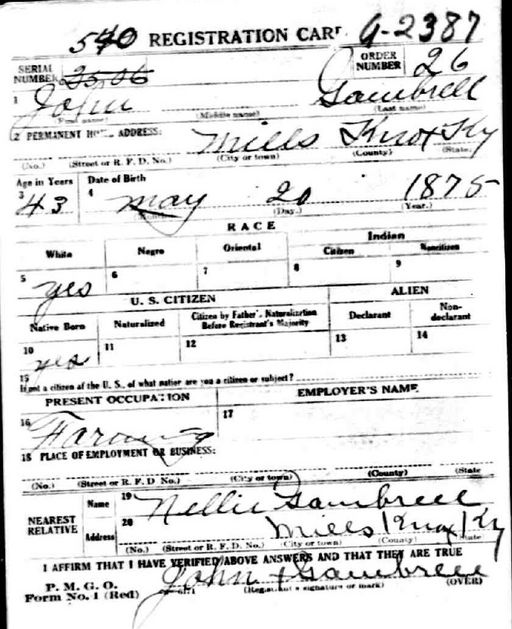 540 REGISTRATION CARD G-2387
SERIAL NUMBER 2506 ORDER NUMBER 26
1 John Gambrell
(First name) (Middle name) (Last name)
2 PERMANENT HOME ADDRESS: Mills Knox Ky
(No.) (Street or R. F. D. No.) (City or town) (County) (State)
Age in Years Date of Birth
3 43 4 May 20 1875
(Month.) (Day.) (Year.)
RACE
White Negro Oriental Indian
Citizen Noncitizen
5 yes 6 7 8 9
U. S. CITIZEN ALIEN
Native Born Naturalized Citizen by Father's Naturalization Before Registrant's Majority Declarant Non-declarant
10 yes 11 12 13 14
15 If not a citizen of the U. S., of what nation are you a citizen or subject?
PRESENT OCCUPATION EMPLOYER'S NAME
16 Farming 17
18 PLACE OF EMPLOYMENT OR BUSINESS:
(No.) (Street or R. F. D. No.) (City or town) (County) (State
NEAREST RELATIVE Name 19 Nellie Gambrell
Address 20 Mills Knox Ky
(No.) (Street or R. F. D. No.) (City or town) (County) State
I AFFIRM THAT I HAVE VERIFIED ABOVE ANSWERS AND THAT THEY ARE TRUE
P. M. G. O.
Form No. 1 (Red) John Gambrell
(Registrant's signature or mark) (OVER)